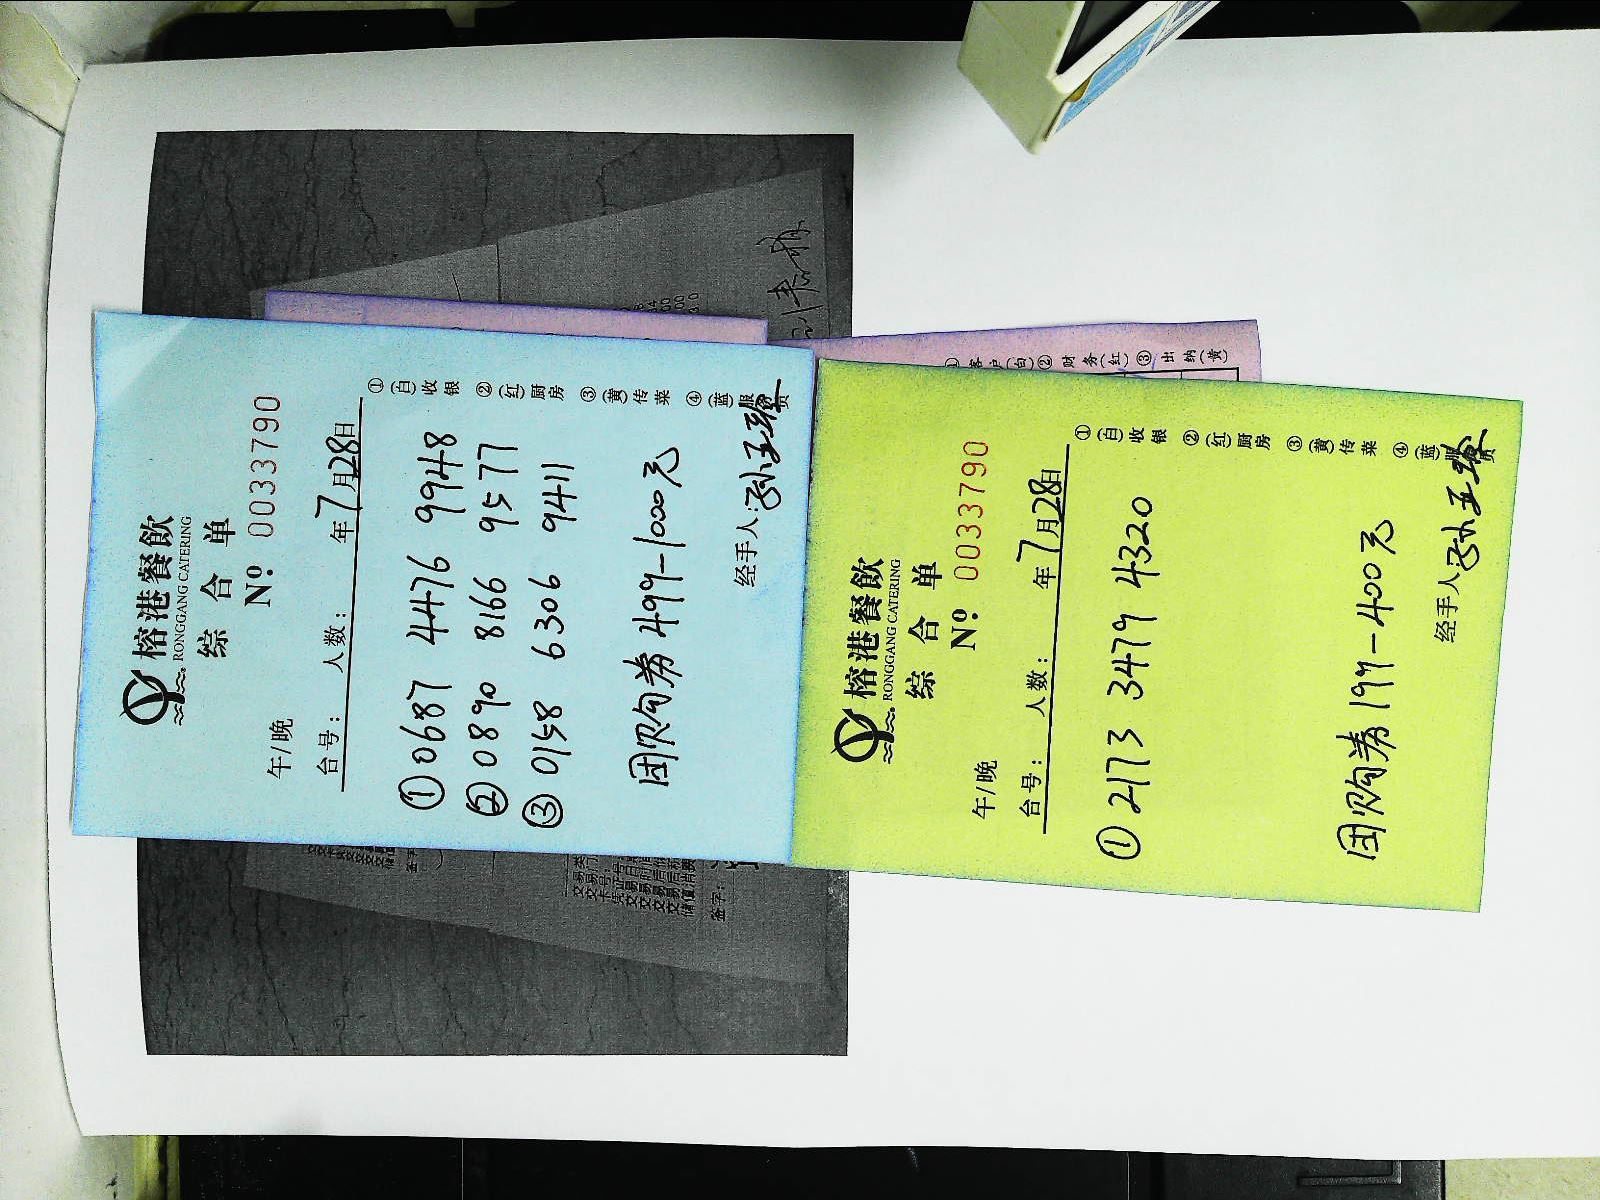 榕港餐飲
RONGGANG CATERING
综合单
№ 0033790
午/晚 年7月28日
台号： 人数：
①0687 4476 9948
②0890 8166 9577
③0158 6306 9411
团购券499-1000元
经手人:
①(白)收银 ②(红)厨房 ③(黄)传菜 ④(蓝)服务员
榕港餐飲
RONGGANG CATERING
综合单
№ 0033790
午/晚 年7月28日
台号： 人数：
①2173 3479 4320
团购券199-400元
经手人:
①(白)收银 ②(红)厨房 ③(黄)传菜 ④(蓝)服务员
①客户(白)②财务(红)③出纳(黄)
签字：